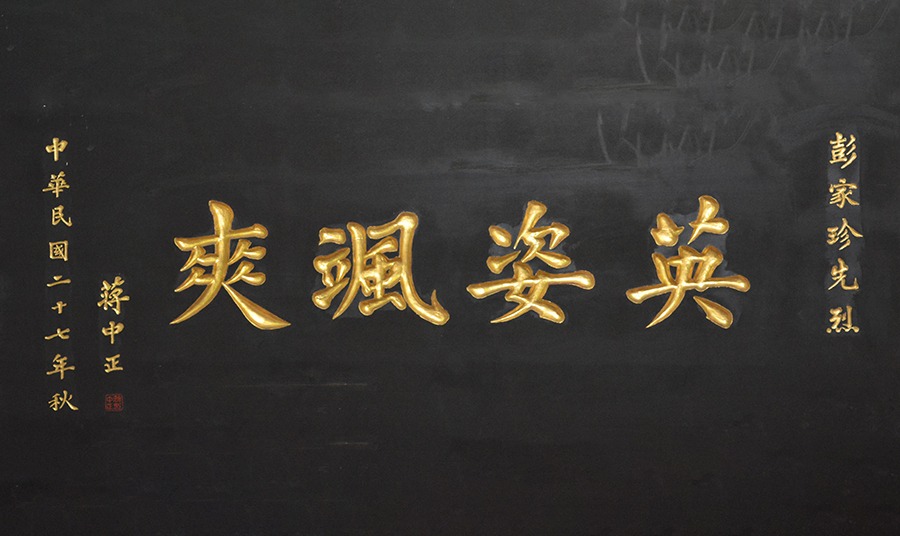 彭家珍先烈
英姿颯爽
蔣中正
中華民國二十七年秋